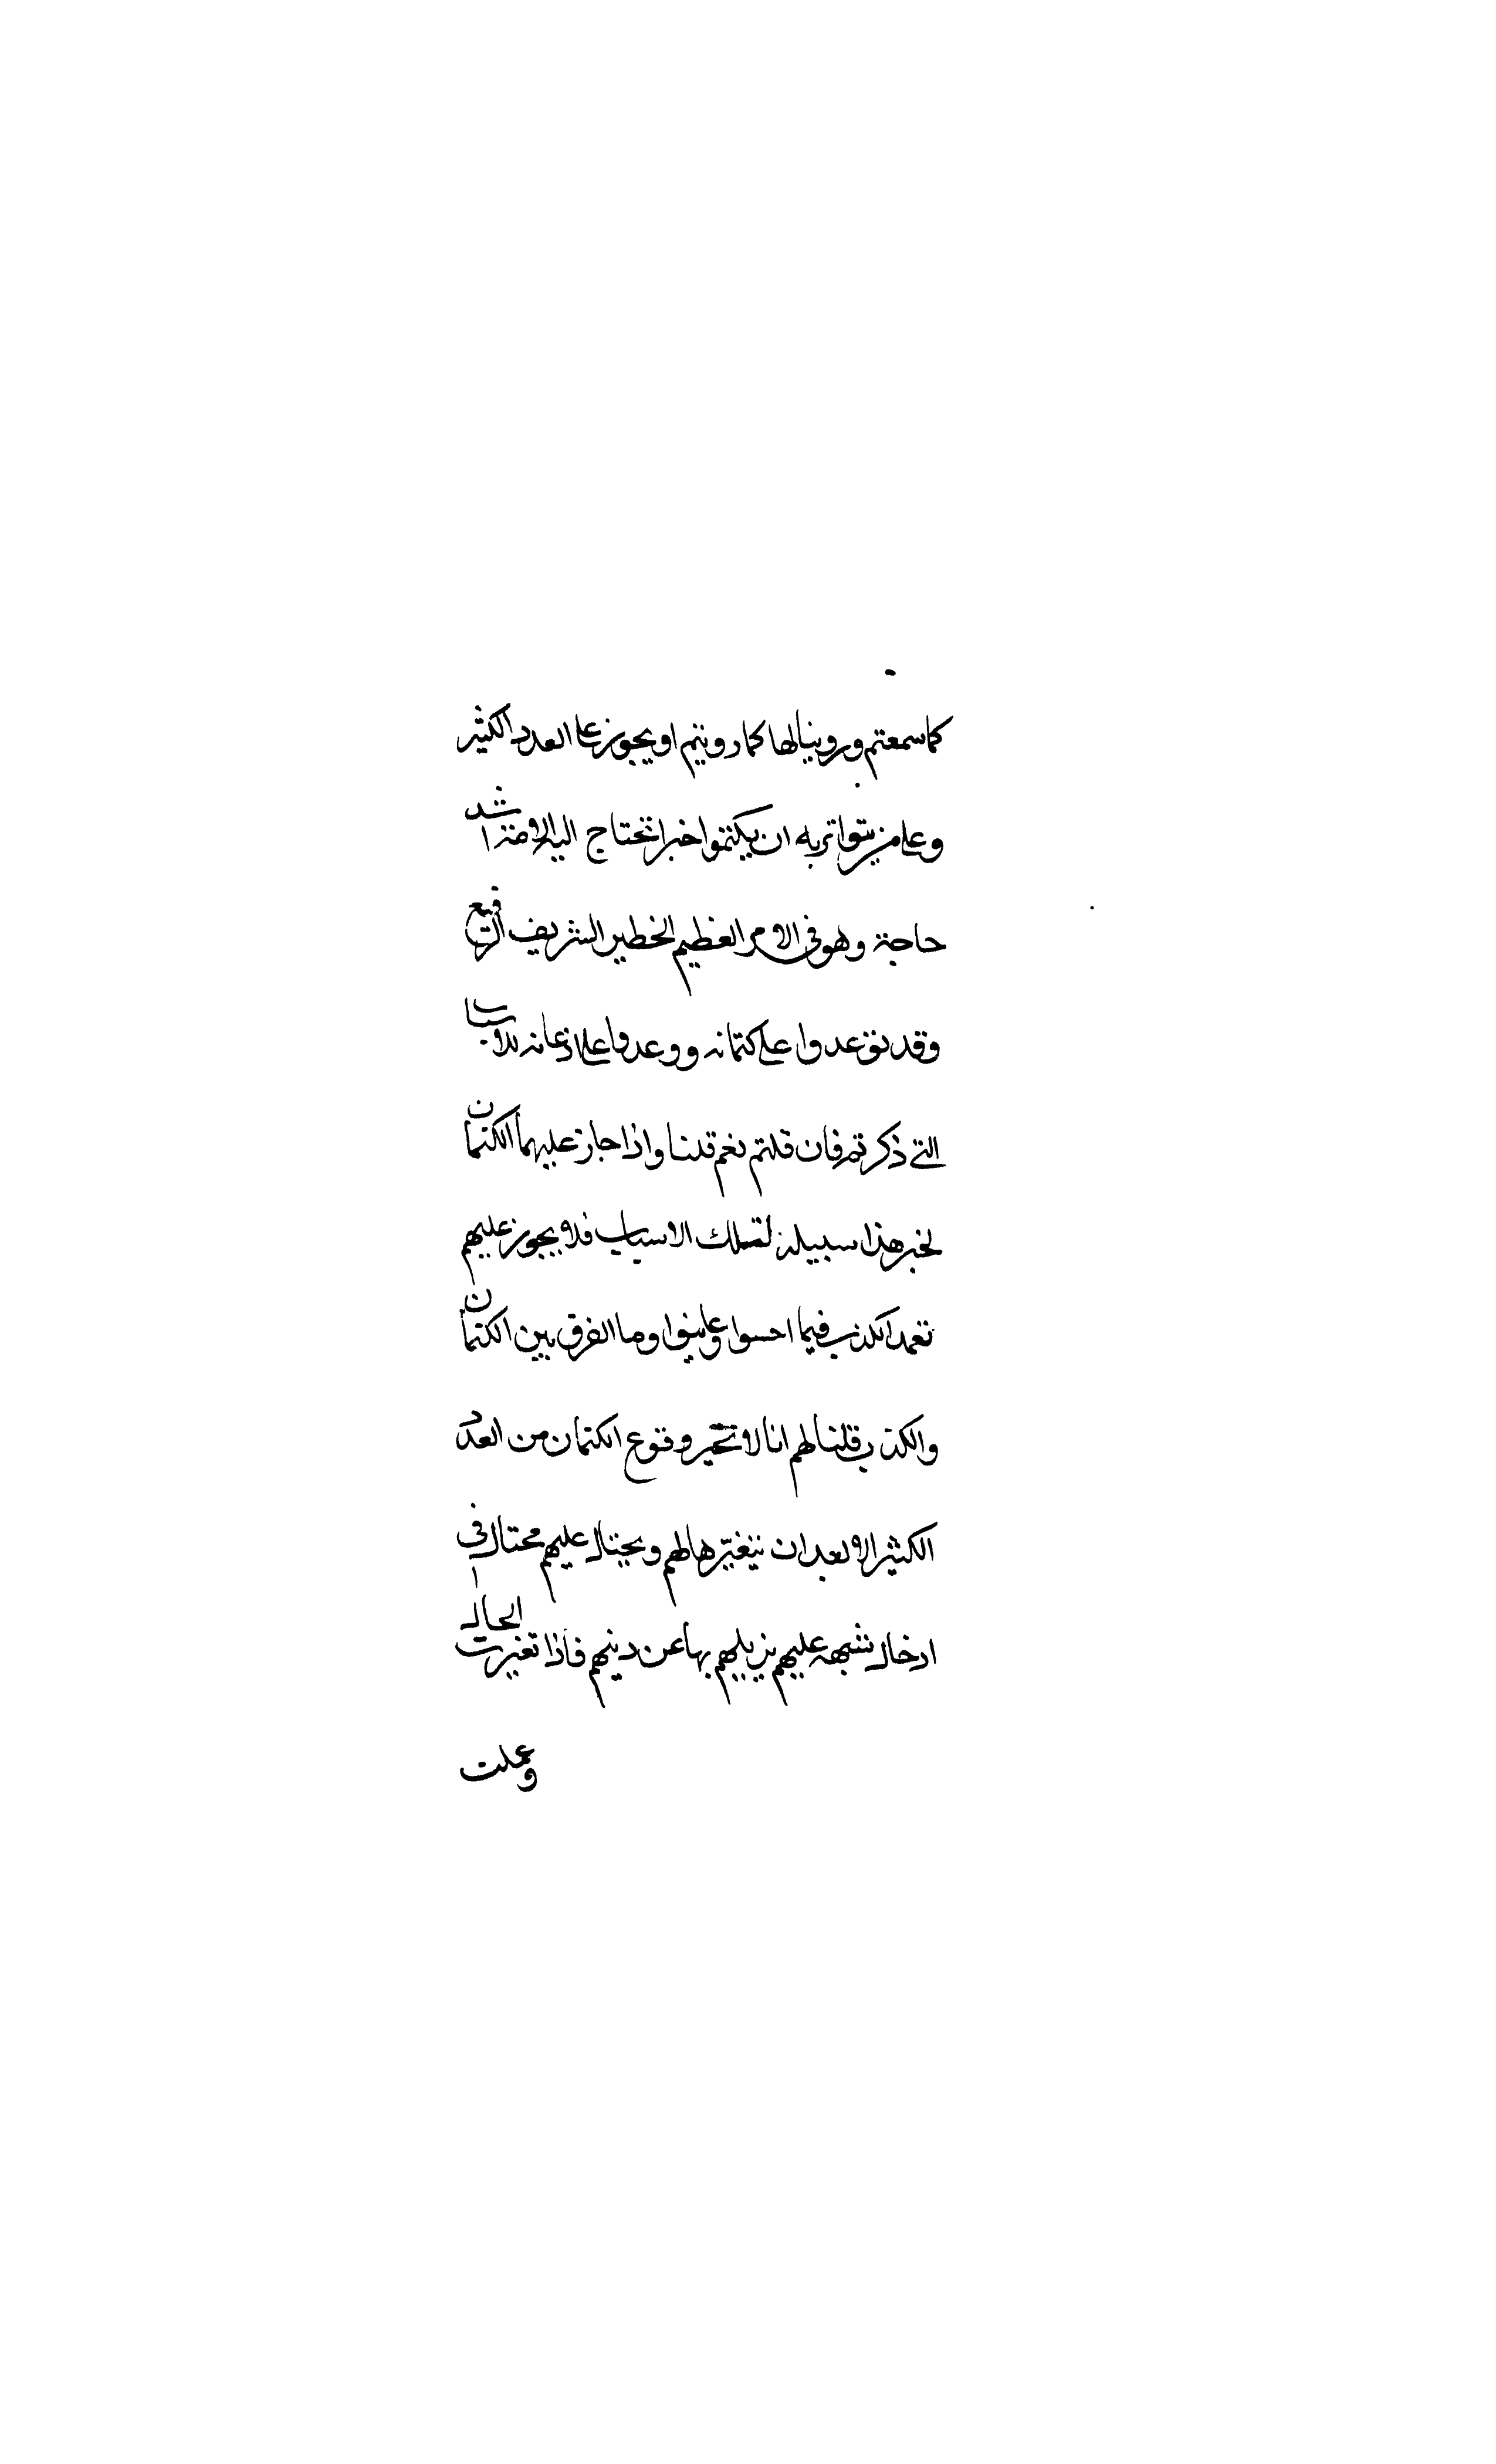 كما سمعتم وروينا لها كما رويتم او يجوز على العدد الكثير
وعلى من يتواتر به ان يكتموا خبرا تحتاج اليه الامة اشد
حاجة وهو في الامر العظيم الخطير الشريف الرفيع
وقد توعدوا على كتمانه ووعدوا على اذعانه للاسباب
التي ذكرتم فان قلتم نعم قلنا واذا جاز عليهما الكتمان
لخبر هذا سبيله لتلك الاسباب فلا يجوز عليهم
تعمد الكذب فيما احسوا وعاينوا وما الفرق بين الكتمان
والكذب قلنا لهم انا لا نجيز وقوع الكتمان من العدد
الكثير الا بعد ان تتغير حالهم ويحتال عليهم محتال في
ادخال شبهه عليهم يزيلهم بها عن دينهم فاذا تغيرت الحال
وعملت